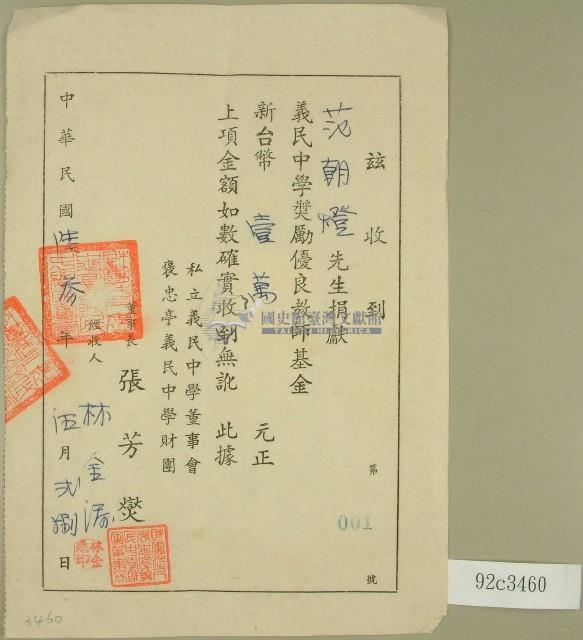 茲收到
范朝燈先生捐獻
義民中學獎勵優良教師基金
新台幣壹萬元正
上項金額如數確實收到無訛 此據
私立義民中學董事會
褒忠亭義民中學財團
董事長 張芳燮
經收人 林金
中華民國陸參年伍月弍捌日
第 001 號
林金
印
國史館臺灣文獻館
TAIWAN HISTORICA
3460
92c3460